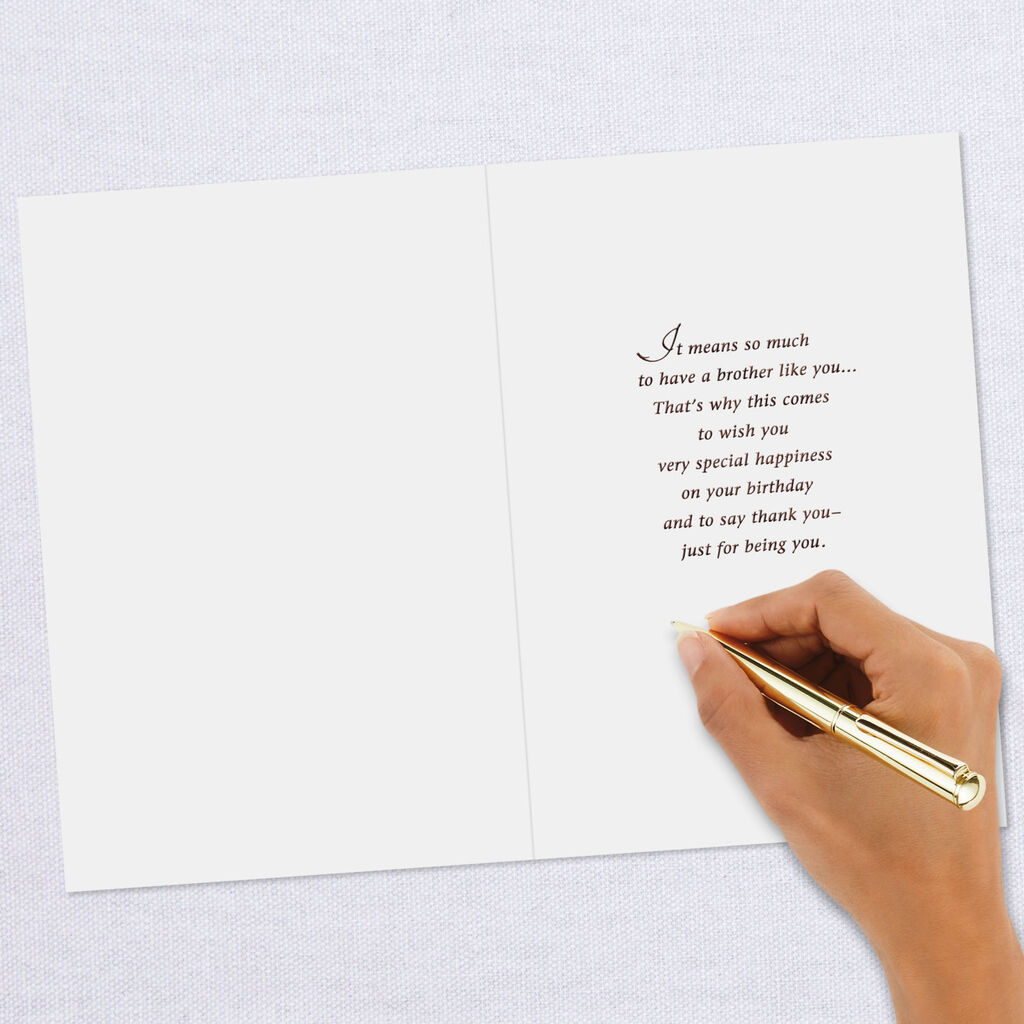 It means so much
to have a brother like you...
That's why this comes
to wish you
very special happiness
on your birthday
and to say thank you–
just for being you.